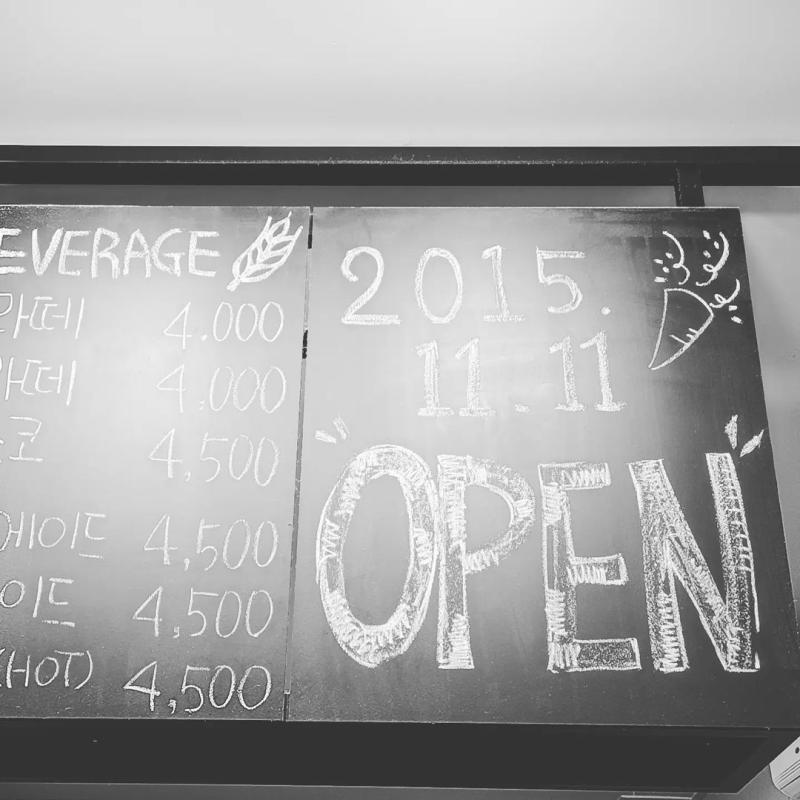 EVERAGE
라떼 4.000
라떼 4,000
코 4,500
에이드 4,500
이드 4,500
(HOT) 4,500
2015.
11.11
OPEN